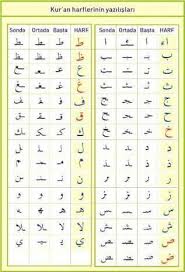 Kur'an harflerinin yazılışları
Sonda Ortada Başta HARF Sonda Ortada Başta HARF
ـط ـطـ طـ ط
ـظ ـظـ ظـ ظ
ـع ـعـ عـ ع
ـغ ـغـ غـ غ
ـف ـفـ فـ ف
ـق ـقـ قـ ق
ـك ـكـ كـ ك
ـل ـلـ لـ ل
ـم ـمـ مـ م
ـن ـنـ نـ ن
ـو ـو و و
ـه ـهـ هـ ه
ـلا ـلا لا لا
ـى ـيـ يـ ى
ـا ـا ا ا ء
ـب ـبـ بـ ب
ـت ـتـ تـ ت
ـث ـثـ ثـ ث
ـج ـجـ جـ ج
ـح ـحـ حـ ح
ـخ ـخـ خـ خ
ـد ـد د د
ـذ ـذ ذ ذ
ـر ـر ر ر
ـز ـز ز ز
ـس ـسـ سـ س
ـش ـشـ شـ ش
ـص ـصـ صـ ص
ـض ـضـ ضـ ض